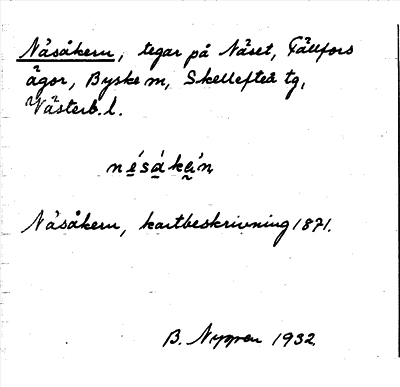 Näsåkern, tegar på Näset, Fällfors
ägor, Byske m, Skellefteå tg,
Västerb. l.
Näsåkern, kartbeskrivning 1871.
B. Nyman 1932